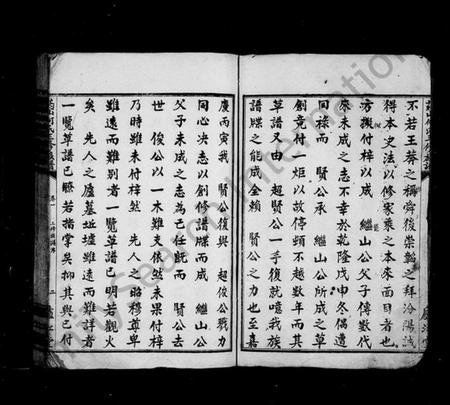 不若王蔡之稱舜後崇韜之拜汾陽誠
得本史法以修家乘之本來面目者也
方擬付梓以成 繼山公父子傳數代
來未成之志不幸於乾隆戊申冬偶遭
回祿 賢公承 繼山公所成之草
創竟付一炬以故停頓不越數年而其
草譜又由 超賢公一手復就噫我族
譜牒之能成全賴 賢公之力也至嘉
慶丙寅我 賢公復與 超俊公戮力
同心決志以創修譜牒而成 繼山公
父子未成之志為已任既而 賢公去
世 俊公以一木難支依然未果付梓
乃時雖未付梓然 先人之昭穆尊卑
雖遠而難別者一覽草譜已明若觀火
矣 先人之廬墓址墟雖遠而難詳者
一覽草譜已瞭若指掌矣抑其與已付
卷一
二
My Season International